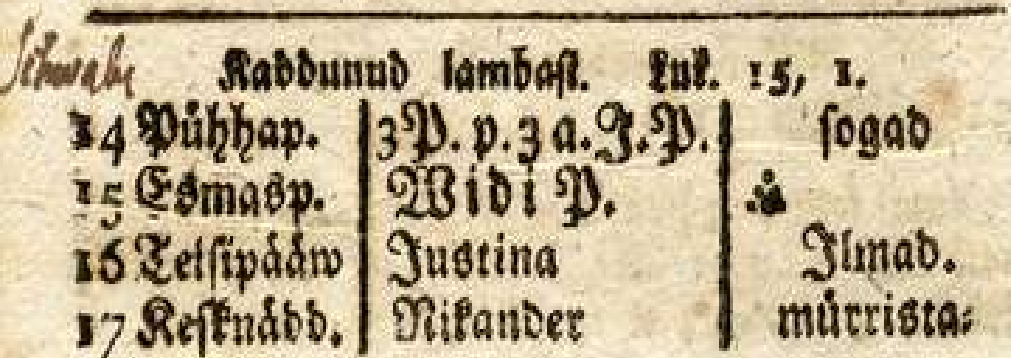 Kaddunud lambast. Luk. 15, 1.
14 Pühhap. 3 P. p. 3 a. J. P. sogad
15 Esmasp. Widi P.
16 Teisipääw Justina Ilmad.
17 Kesknädd. Nikander mürrista-